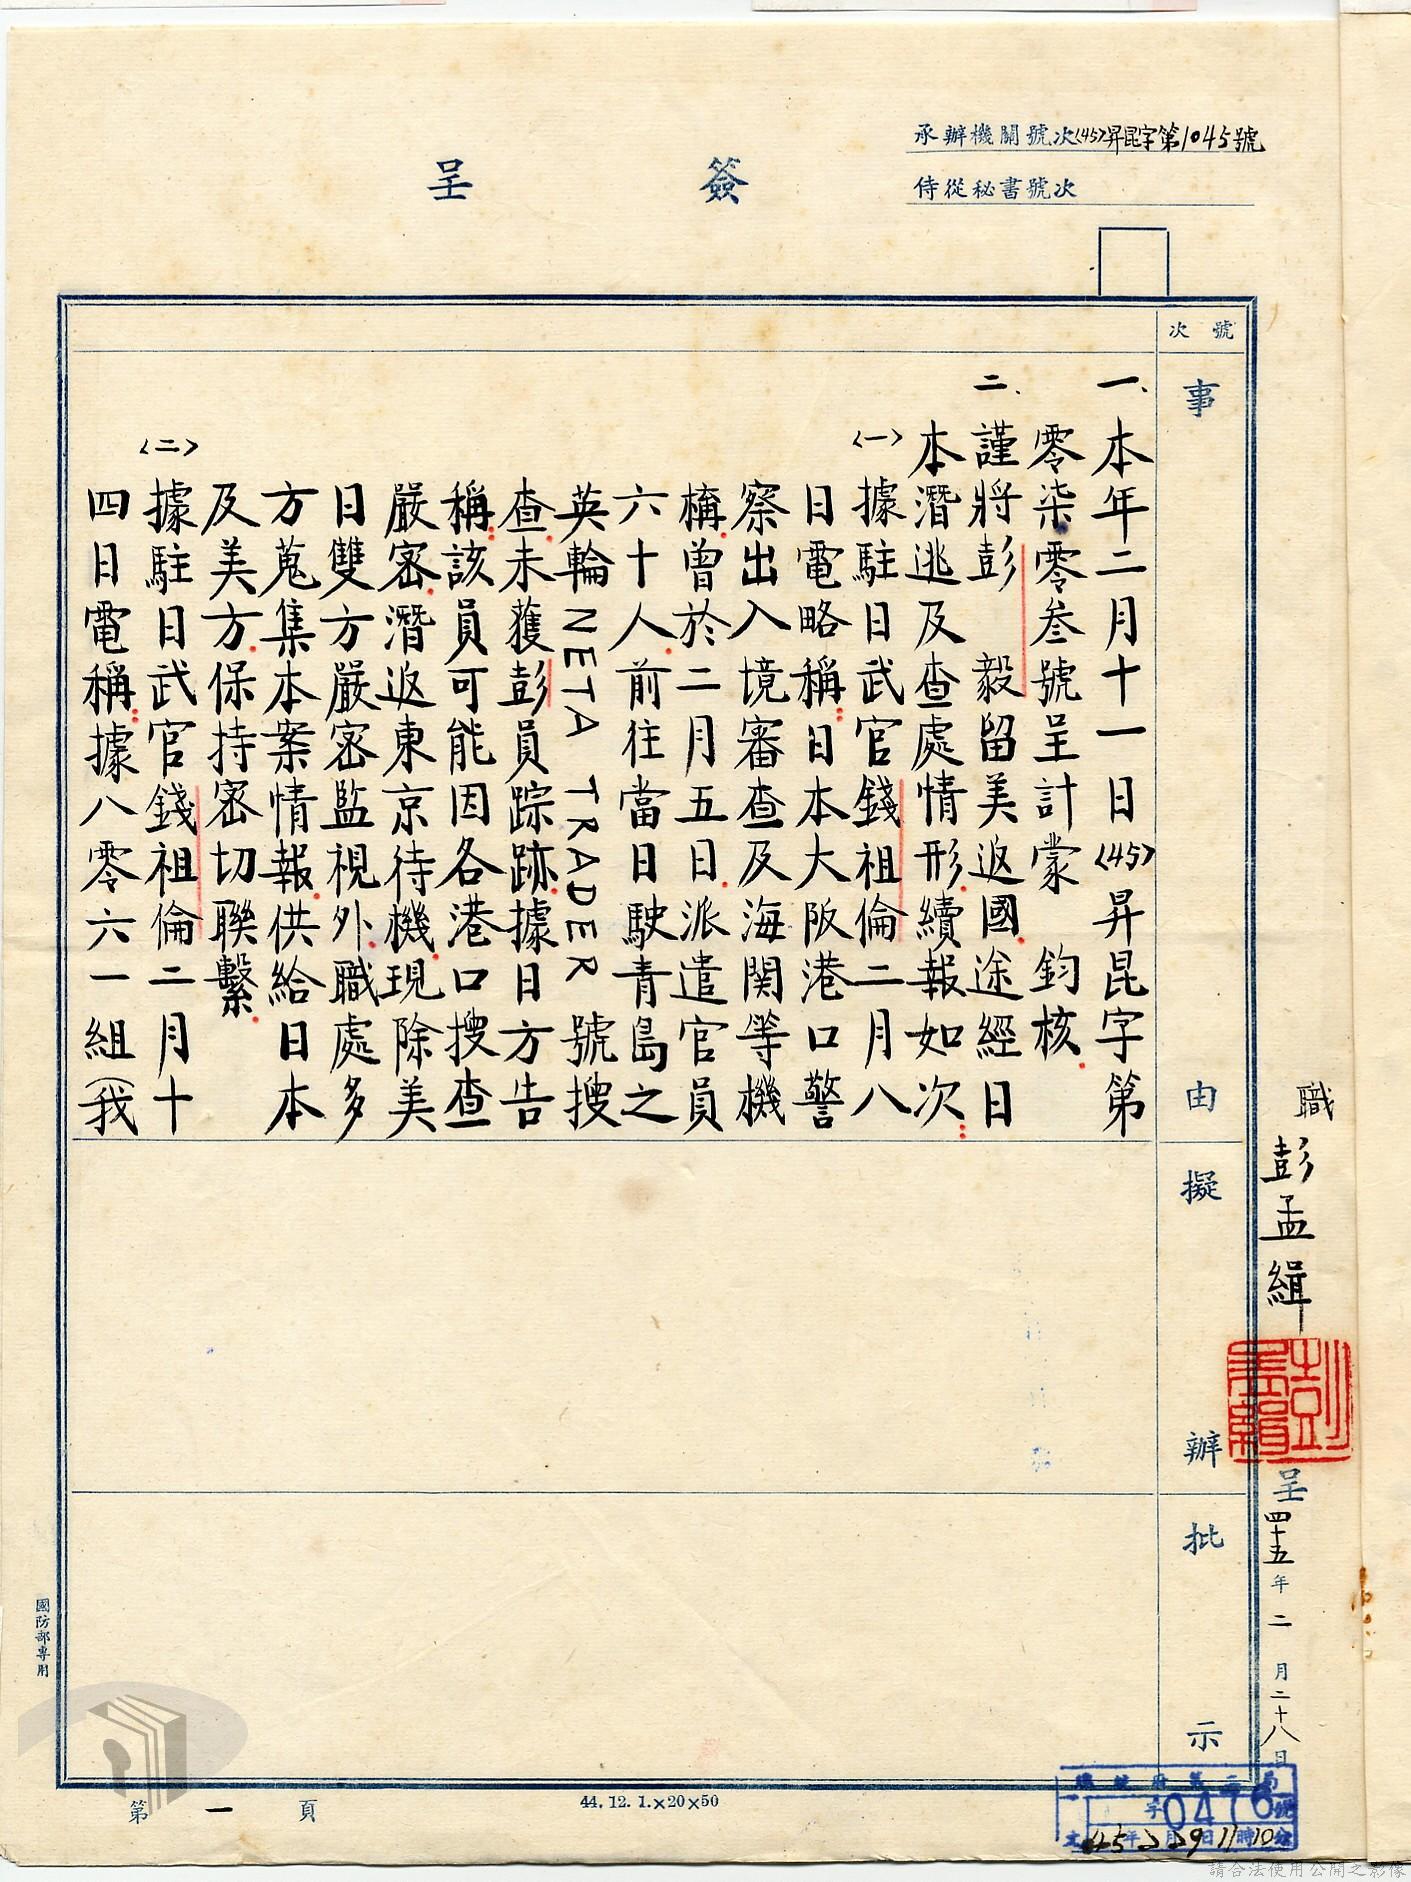 承辦機關號次(45)昇昆字第1045號
侍從秘書號次
簽呈
號次
事由
擬辦
批示
一、本年二月十一日(45)昇昆字第
零柒零叁號呈計蒙 鈞核.
二、謹將彭 毅留美返國.途經日
本潛逃及查處情形.續報如次:
(一)據駐日武官錢祖倫二月八
日電略稱:日本大阪港口警
察出入境審查及海関等機
構.曾於二月五日.派遣官員
六十人.前往當日駛青島之
英輪NETA TRADER號搜
查.未獲彭員踪跡.據日方告
稱:該員可能因各港口搜查
嚴密.潛返東京待機.現除美
日雙方嚴密監視外.職處多
方蒐集本案情報.供給日本
及美方.保持密切聯繫.
(二)據駐日武官錢祖倫二月十
四日電稱:據八零六一組(我
職彭孟緝
彭孟緝
呈四十五年二月二十八日
國防部專用
第一頁
44.12.1.×20×50
總統府第二局
字0476號
文45年2月29日11時10分
請合法使用公開之影像